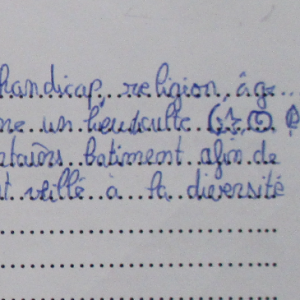 handicap, religion, âge..
un lieu culte (
batiment afin de
veillé à la diversité